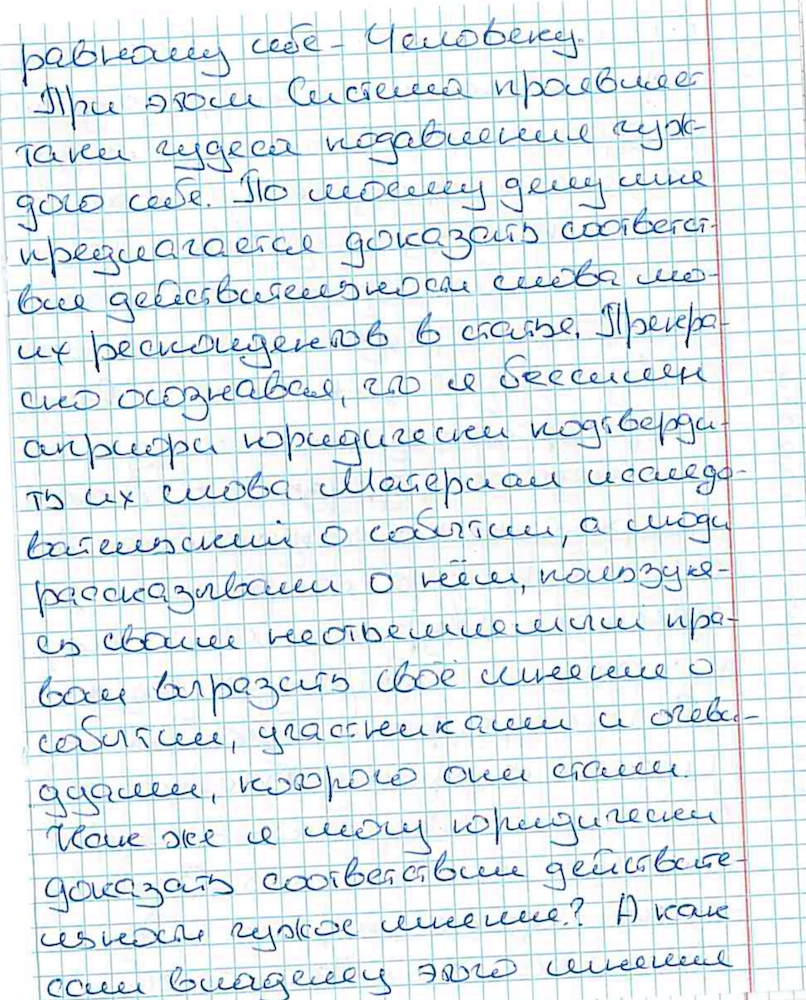 равному себе - Человеку.
При этом Система проявляет
таки чудеса подавления чуж-
дого себе. По моему делу мне
предлагается доказать соответст-
вие действительности слова мо-
их респондентов в статье. Прекра-
сно осознавая, что я бессилен
априори юридически подтверди-
ть их слова. Материал исследо-
вательский о событии, а люди
рассказывали о нём, пользуяс-
сь своим неотъемлемым пра-
вом выразить своё мнение о
событии, участниками и очеви-
дцами, которого они стали.
Как же я могу юридически
доказать соответствии действите-
льности чужое мнение? А как
сам владелец этого мнения